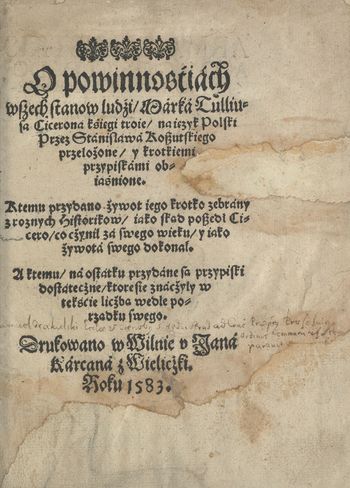 O powinnośćiách
wszech stanow ludźi / Márká Tulliu-
sá Cicerona kśięgi troie / na ięzyk Polski
Przez Stánisłáwá Koszutskiego
przełożone / y krotkiemi
przypiskámi ob-
iáśnione.
K temu przydano żywot iego krotko zebrány
z roznych Historikow / iáko skąd poszedł Ci-
cero / co czynił zá swego wieku / y iáko
żywotá swego dokonał.
A k temu / ná ostátku przydáne są przypiski
dostáteczne / ktore sie znáczyły w
tekśćie liczbą wedle po-
rządku swego.
Drukowano w Wilnie v Janá
Kárcaná z Wieliczki.
Roku 1583.